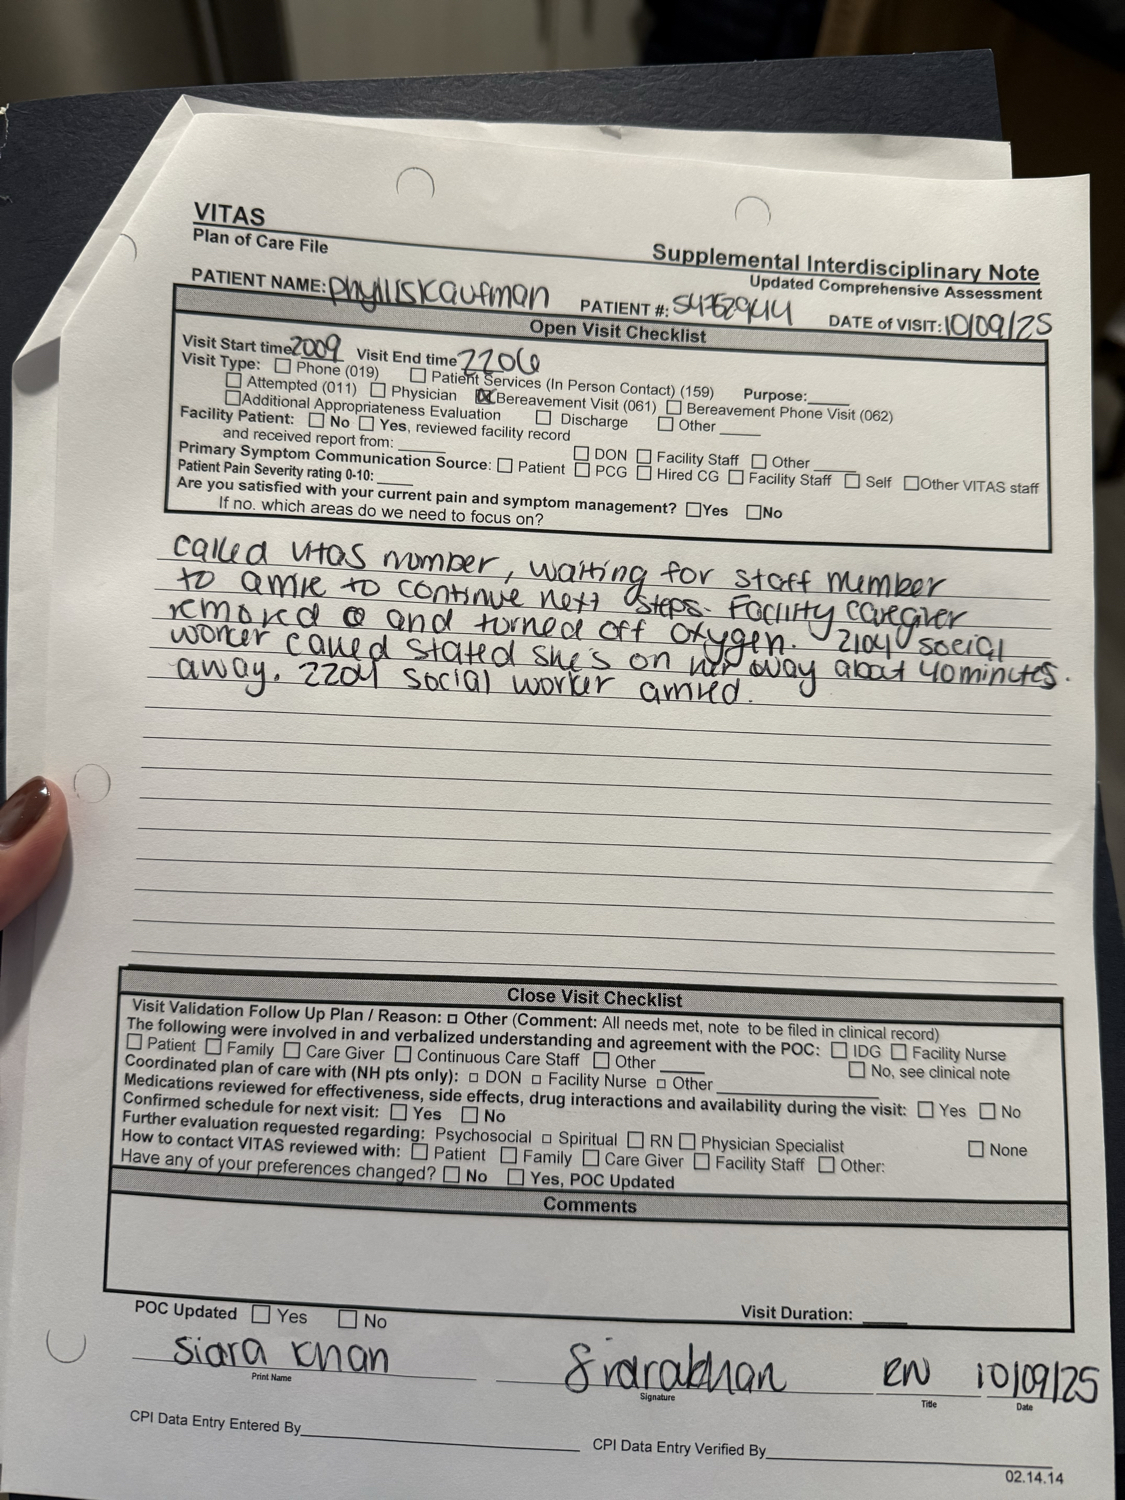 VITAS
Plan of Care File
Supplemental Interdisciplinary Note
Updated Comprehensive Assessment
PATIENT NAME: Phyllis Kaufman PATIENT #: DATE of VISIT: 10/09/25
Open Visit Checklist
Visit Start time 2009 Visit End time 2206
Visit Type: ☐ Phone (019) ☐ Patient Services (In Person Contact) (159) Purpose:____
☐ Attempted (011) ☐ Physician ☒ Bereavement Visit (061) ☐ Bereavement Phone Visit (062)
☐ Additional Appropriateness Evaluation ☐ Discharge ☐ Other ____
Facility Patient: ☐ No ☐ Yes, reviewed facility record
and received report from: ____ ☐ DON ☐ Facility Staff ☐ Other ____
Primary Symptom Communication Source: ☐ Patient ☐ PCG ☐ Hired CG ☐ Facility Staff ☐ Self ☐ Other VITAS staff
Patient Pain Severity rating 0-10: ____
Are you satisfied with your current pain and symptom management? ☐ Yes ☐ No
If no. which areas do we need to focus on?
called vitas number, waiting for staff member
to arrive to continue next steps. Facility caregiver
removed and turned off oxygen. 2104 social
worker called stated she's on her way about 40 minutes.
away. 2204 social worker arrived.
Close Visit Checklist
Visit Validation Follow Up Plan / Reason: ☐ Other (Comment: All needs met, note to be filed in clinical record)
The following were involved in and verbalized understanding and agreement with the POC: ☐ IDG ☐ Facility Nurse
☐ Patient ☐ Family ☐ Care Giver ☐ Continuous Care Staff ☐ Other ____ ☐ No, see clinical note
Coordinated plan of care with (NH pts only): ☐ DON ☐ Facility Nurse ☐ Other ____
Medications reviewed for effectiveness, side effects, drug interactions and availability during the visit: ☐ Yes ☐ No
Confirmed schedule for next visit: ☐ Yes ☐ No
Further evaluation requested regarding: Psychosocial ☐ Spiritual ☐ RN ☐ Physician Specialist ☐ None
How to contact VITAS reviewed with: ☐ Patient ☐ Family ☐ Care Giver ☐ Facility Staff ☐ Other:
Have any of your preferences changed? ☐ No ☐ Yes, POC Updated
Comments
POC Updated ☐ Yes ☐ No Visit Duration: ____
Siara Khan Siarakhan RN 10/09/25
Print Name Signature Title Date
CPI Data Entry Entered By____ CPI Data Entry Verified By____
02.14.14